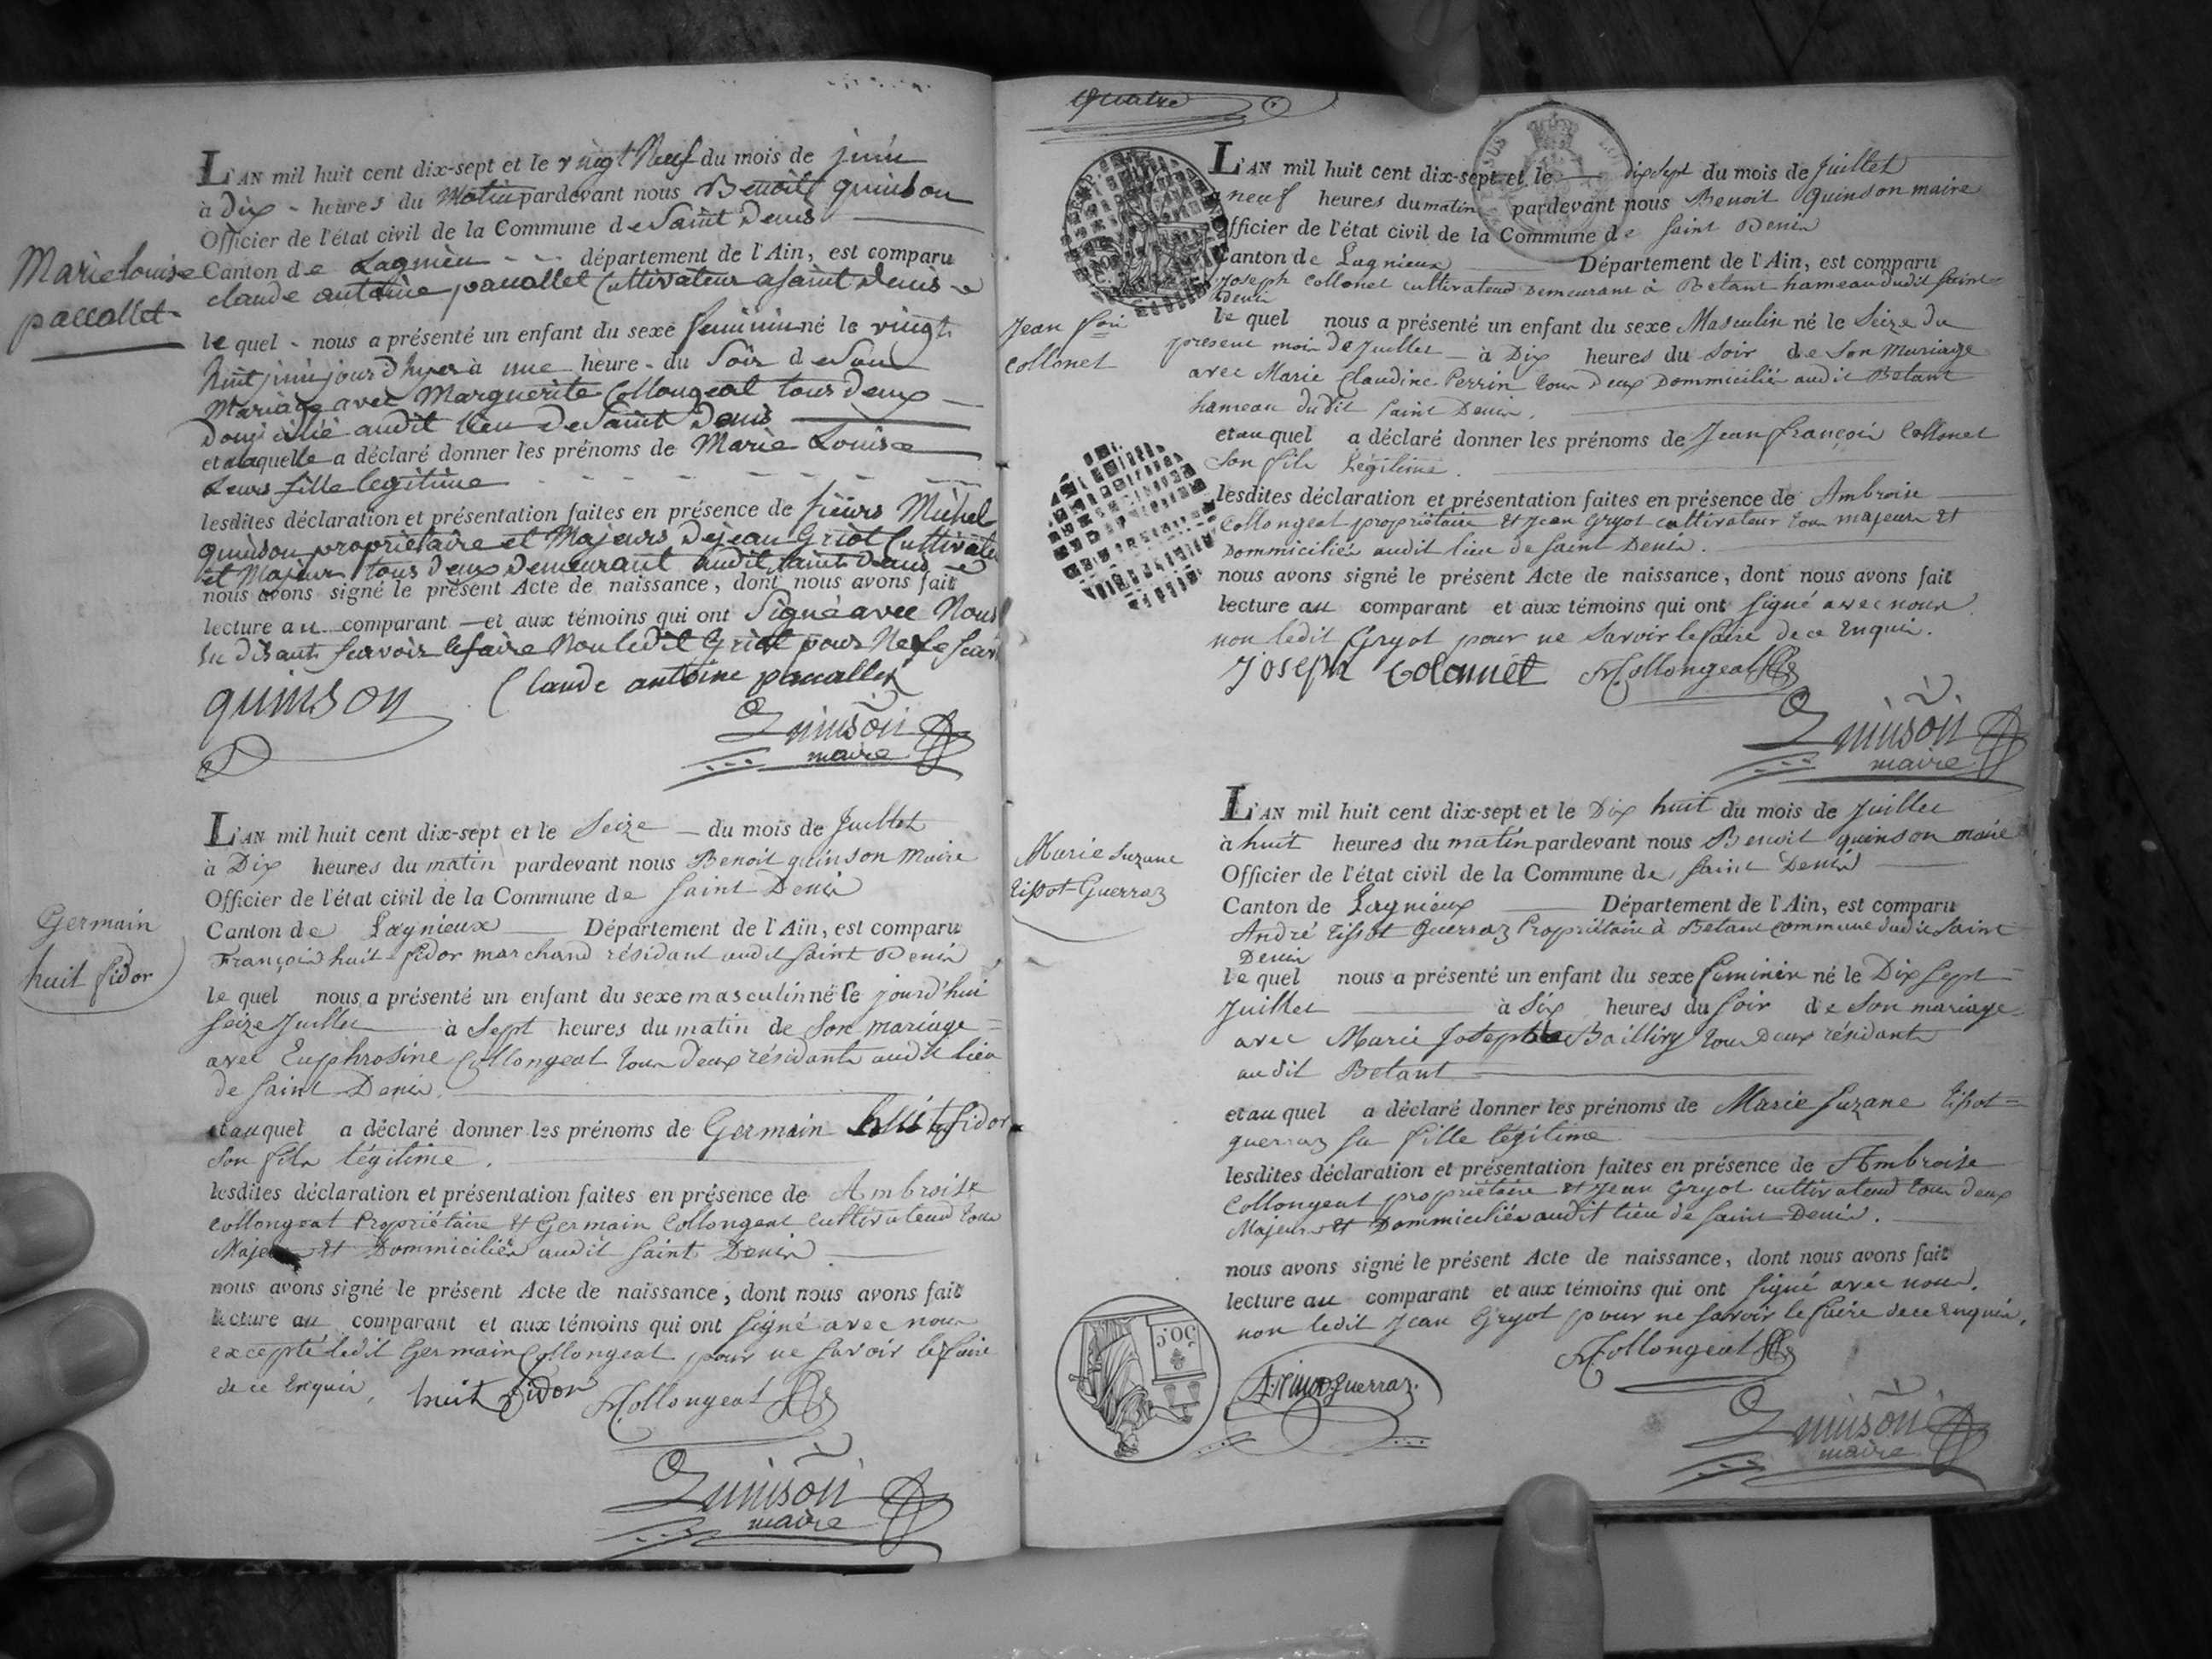 L'AN mil huit cent dix-sept et le vingt Neuf du mois de juin
à dix - heures du Matin pardevant nous Benoit quinson
Officier de l'état civil de la Commune de Saint Denis
Canton de Lagnieu - - département de l'Ain, est comparu
claude antoine pacallet Cultivateur a saint denis
Marie Louise
pacallet
le quel - nous a présenté un enfant du sexe feminin né le vingt
huit juin jour d'hyer à une heure - du Soir de son
Mariage avec Marguerite Collongeat tous deux
domicilié audit lieu de Saint denis
et a laquelle a déclaré donner les prénoms de Marie Louise
Leurs fille legitime
lesdites déclaration et présentation faites en présence de sieurs Michel
quinson propriètaire et Majeurs de jean Griot Cultivate
et Majeur tous deux demeurant audit saint denis
nous avons signé le présent Acte de naissance, dont nous avons fait
lecture au comparant - et aux témoins qui ont Signé avec Nous
disant scavoir le faire Non ledit Griot pour Ne le scav
quinson Claude antoine pacallet
Quinson
maire
L'AN mil huit cent dix-sept et le Seize - du mois de Juillet
à Dix heures du matin pardevant nous Benoit quinson Maire
Officier de l'état civil de la Commune de Saint Denis
Canton de Lagnieux Département de l'Ain, est comparu
François huit-fidor marchand résidant audit Saint Denis
Germain
huit fidor
le quel nous a présenté un enfant du sexe masculin né le jourd'hui
seize Juillet à Sept heures du matin de Son mariage =
avec Euphrosine Collongeat tous deux résidants audit lieu
de Saint Denis.
et au quel a déclaré donner les prénoms de Germain huit fidor
Son fils légitime.
lesdites déclaration et présentation faites en présence de Ambroise
Collongeat Propriétaire et Germain Collongeat cultivateurs tous
Majeurs et Dommiciliés audit Saint Denis
nous avons signé le présent Acte de naissance, dont nous avons fait
lecture au comparant et aux témoins qui ont signé avec nous
excepté ledit Germain Collongeat pour ne savoir le faire
de ce Enquis. huit fidor Collongeat
Quinson
maire
quatre
L'AN mil huit cent dix-sept et le dix sept du mois de Juillet
a neuf heures du matin pardevant nous Benoit Quinson maire
Officier de l'état civil de la Commune de Saint Denis
Canton de Lagnieux Département de l'Ain, est comparu
Joseph Collonet cultivateur Demeurant à Betant hameau dudit Saint=
Denis
Jean fois
Collonet
le quel nous a présenté un enfant du sexe Masculin né le Seize du
present mois de Juillet - à Dix heures du Soir de Son Mariage
avec Marie Claudine Perrin tous Deux Dommiciliés audit Betant
hameau dudit Saint Denis.
et au quel a déclaré donner les prénoms de Jean françois Collonet
Son fils Légitime.
lesdites déclaration et présentation faites en présence de Ambroise
Collongeat propriétaire et Jean Gryot cultivateur tous majeurs et
Dommiciliés audit lieu de Saint Denis.
nous avons signé le présent Acte de naissance, dont nous avons fait
lecture au comparant et aux témoins qui ont signé avec nous
non ledit Gryot pour ne Savoir le faire de ce Enquis.
Joseph Colonnet Collongeat
Quinson
maire
L'AN mil huit cent dix-sept et le Dix huit du mois de Juillet
à huit heures du matin pardevant nous Benoit quinson maire
Officier de l'état civil de la Commune de Saint Denis
Canton de Lagnieux Département de l'Ain, est comparu
André Tissot Guerraz Propriétaire à Betant commune dudit Saint
Denis
Marie Suzane
Tissot-Guerraz
le quel nous a présenté un enfant du sexe feminin né le Dix Sept =
Juillet à Six heures du Soir de Son mariage
avec Marie Josephte Bailliry tous Deux résidants
audit Betant
et au quel a déclaré donner les prénoms de Marie Suzane Tissot=
guerraz sa fille légitime
lesdites déclaration et présentation faites en présence de Ambroise
Collongeat propriétaire et Jean Gryot cultivateur tous deux
Majeurs et Dommiciliés audit lieu de Saint Denis.
nous avons signé le présent Acte de naissance, dont nous avons fait
lecture au comparant et aux témoins qui ont signé avec nous.
non ledit Jean Gryot pour ne savoir le faire de ce Enquis.
Collongeat
50.C
Guerraz
Quinson
maire